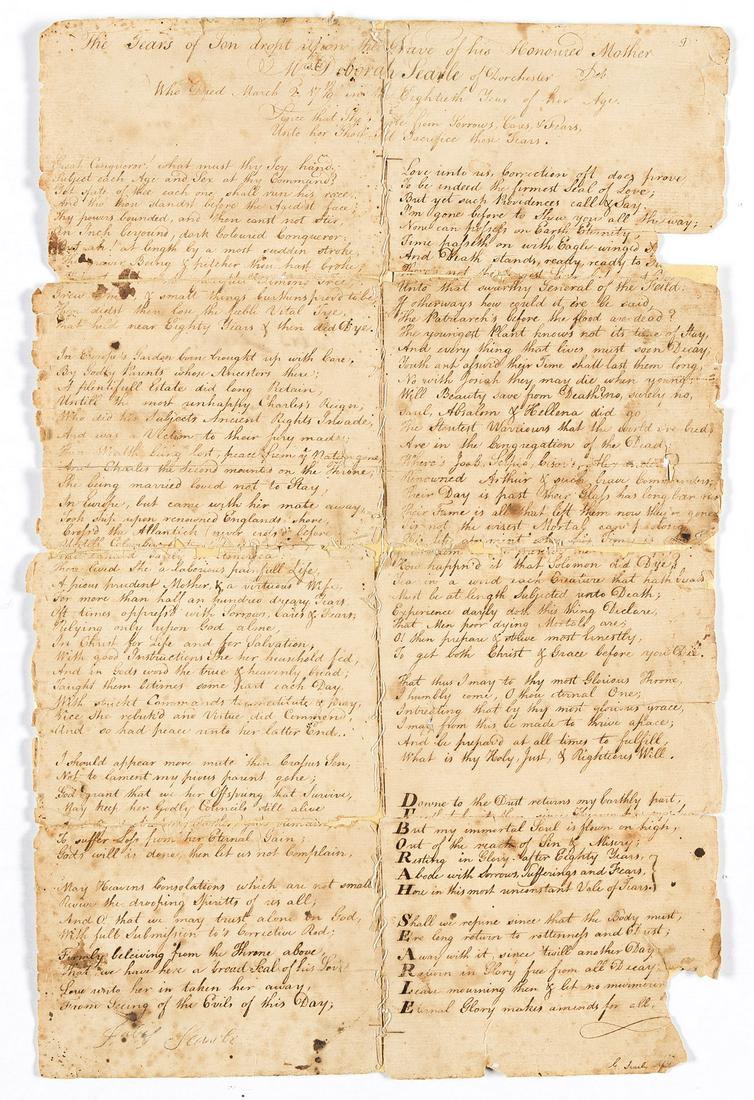 The Tears of Son dropt upon the Grave of his Honoured Mother
Mrs Deborah Searle of Dorchester
Who Dyed March 2 in Eightieth Year of her Age.
from Sorrows, Cares, & Fears,
Unto her Sacrifice these Tears.
Great Conqueror, what must thy Icy hand
Subject each Age and Sex at thy Command?
state of thee each one, shall run his race
And tho thou standst before the face,
Thy powers bounded, and thou canst not
An Inch beyound, dark Coloured Conqueror
at length by a most sudden stroke
Being & pitcher thou hast broke
& small things burthens prov'd to be,
didst then lose the feeble Vital Tye,
That had near Eighty Years & then did Dye.
In Europe's Garden born brought up with Care,
By Godly Parents whose Ancestors there;
A plentifull Estate did long Retain,
Untill the most unhappy Charles's Reign,
Who did his Subjects Ancient Rights Invade,
And was a Victim to their fury made;
Wealth being lost, peace from
And Charles the Second mounts on the Throne;
She being married loved not to Stay,
In Europe, but came with her mate away
Took Ship upon renowned Englands shore,
Cross'd the Atlantick (never cross'd before
in America
Thou lived She a Laborious painfull Life,
A pious prudent Mother, & a virtuous Wife,
For more than half an hundred dreary Years
Oft times oppress'd with Sorrows, Cares & Fears;
Relying only upon God alone,
In Christ for Life and for Salvation,
With good Instructions She her houshold fed,
And in Gods word the true & heavenly bread;
Taught them betimes some part each Day
With strict Commands to meditate & pray,
Vice She rebuk'd and Virtue did Commend,
And so had peace unto her latter End.
I should appear more mute than Cræsus Son,
Not to lament my pious parent gone;
God grant that we her Offspring that Survive,
May keep her Godly Councils still alive
To suffer Loss from her Eternal Gain;
Gods will is done, then let us not Complain,
May Heavens Consolations which are not small
Revive the drooping Spiritts of us all,
And O that we may trust alone in God,
With full Submission to's Corrective Rod;
Firmly beleiving from the Throne above
That we have here a broad Seal of his Love
Love unto her in taken her away,
From Seeing of the Evils of this Day;
Searle
Love unto us, Correction oft does prove
To be indeed the firmest Seal of Love;
But yet such Providences call & Say,
I'm gone before to Shew you all the way;
None can possess on Earth Eternity;
Time passeth on with Eagle winged
And Death stands, ready, ready to
There's not the
Unto that swarthy General of the Feild.
If otherways how could it, e're be said,
The Patriarch's before the flood are dead?
The youngest Plant knows not its time of Stay,
And every thing that lives must soon Decay,
Youth ant assur'd their Time shall last them long,
No with Josiah they may die when young
Will Beauty Save from Death? no, surely no,
Saul, Absalom & Hellena did go
The Stoutest Warriours that the world e're bred
Are in the Congregation of the Dead;
Where's Joab, Scipio,
Renowned Arthur & such brave Commanders,
Their Day is past their Glass has long
Their Fame is all that left them now they're gone
For not the wisest Mortal can prolong
How happn'd it that Solomon did Dye?
Yea in a word each Creature that hath breath
Must be at length Subjected unto Death;
Experience dayly doth this thing Declare,
That Men poor dying Mortals are;
O! then prepare & strive most Ernestly,
To get both Christ & Grace before you Die.
That thus I may to thy most Glorious Throne,
I humbly come, O thou eternal One;
Intreating that by thy most glorious grace,
I may from this be made to thrive apace;
And be prepar'd at all times to fulfill,
What is thy Holy, Just, & Righteious Will.
Downe to the Dust returns my Earthly part,
E
But my immortal Soul is flown on high,
Out of the reach of Sin & Misery;
Resting in Glory after Eighty Years,
Abode with Sorrows, Sufferings and Fears
Here in this most unconstant Vale of Tears.
Shall we repine since that the Body must,
Ere long return to rottenness and Dust;
Away with it, since 'twill another Day
Return in Glory free from all Decay
Leave mourning then & let no murmuring
Eternal Glory makes amends for all.